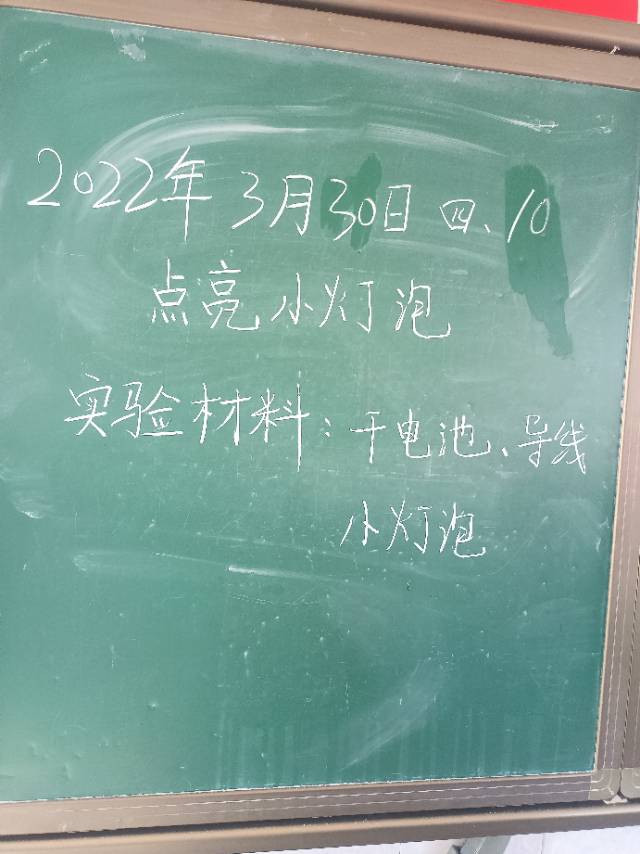 2022年3月30日 四、10
点亮小灯泡
实验材料：干电池、导线
小灯泡